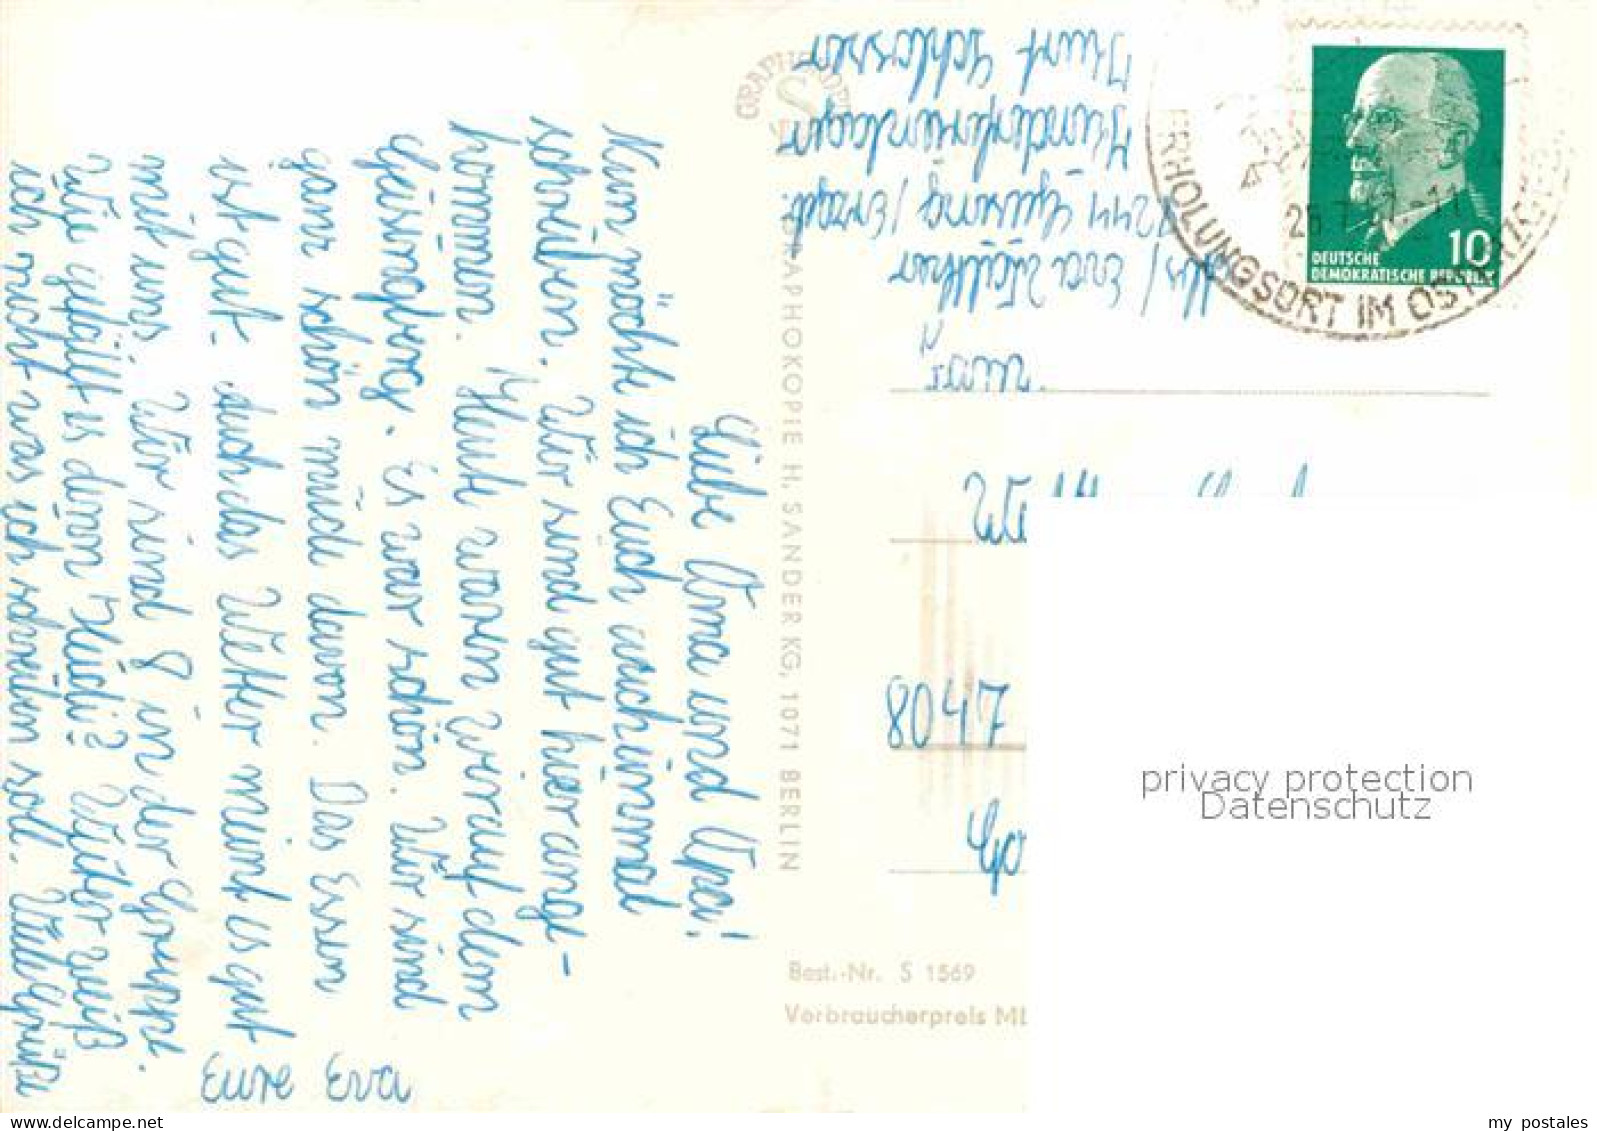 Liebe Oma und Opa!
Nun möchte ich Euch auch einmal
schreiben. Wir sind gut hier ange-
kommen. Heute waren wir auf dem
Geisingberg. Es war schön. Wir sind
ganz schön müde davon. Das Essen
ist gut. Auch das Wetter meint es gut
mit uns. Wir sind 8 in der Gruppe.
Wie gefällt es denn Heidi? Weiter weiß
ich nicht was ich schreiben soll. Viele Grüße
Eure Eva
GRAPHOKOPIE H. SANDER KG, 1071 BERLIN
GRAPHOKOPIE
Abs/ Eva Walther
8244 Geising/Erzgb.
Kinderferienlager
Kurt Schlosser
ERHOLUNGSORT IM OSTERZGEB
DEUTSCHE
DEMOKRATISCHE REPUBLIK
10
8047
Best.-Nr. S 1569
Verbraucherpreis M
privacy protection
Datenschutz
my postales